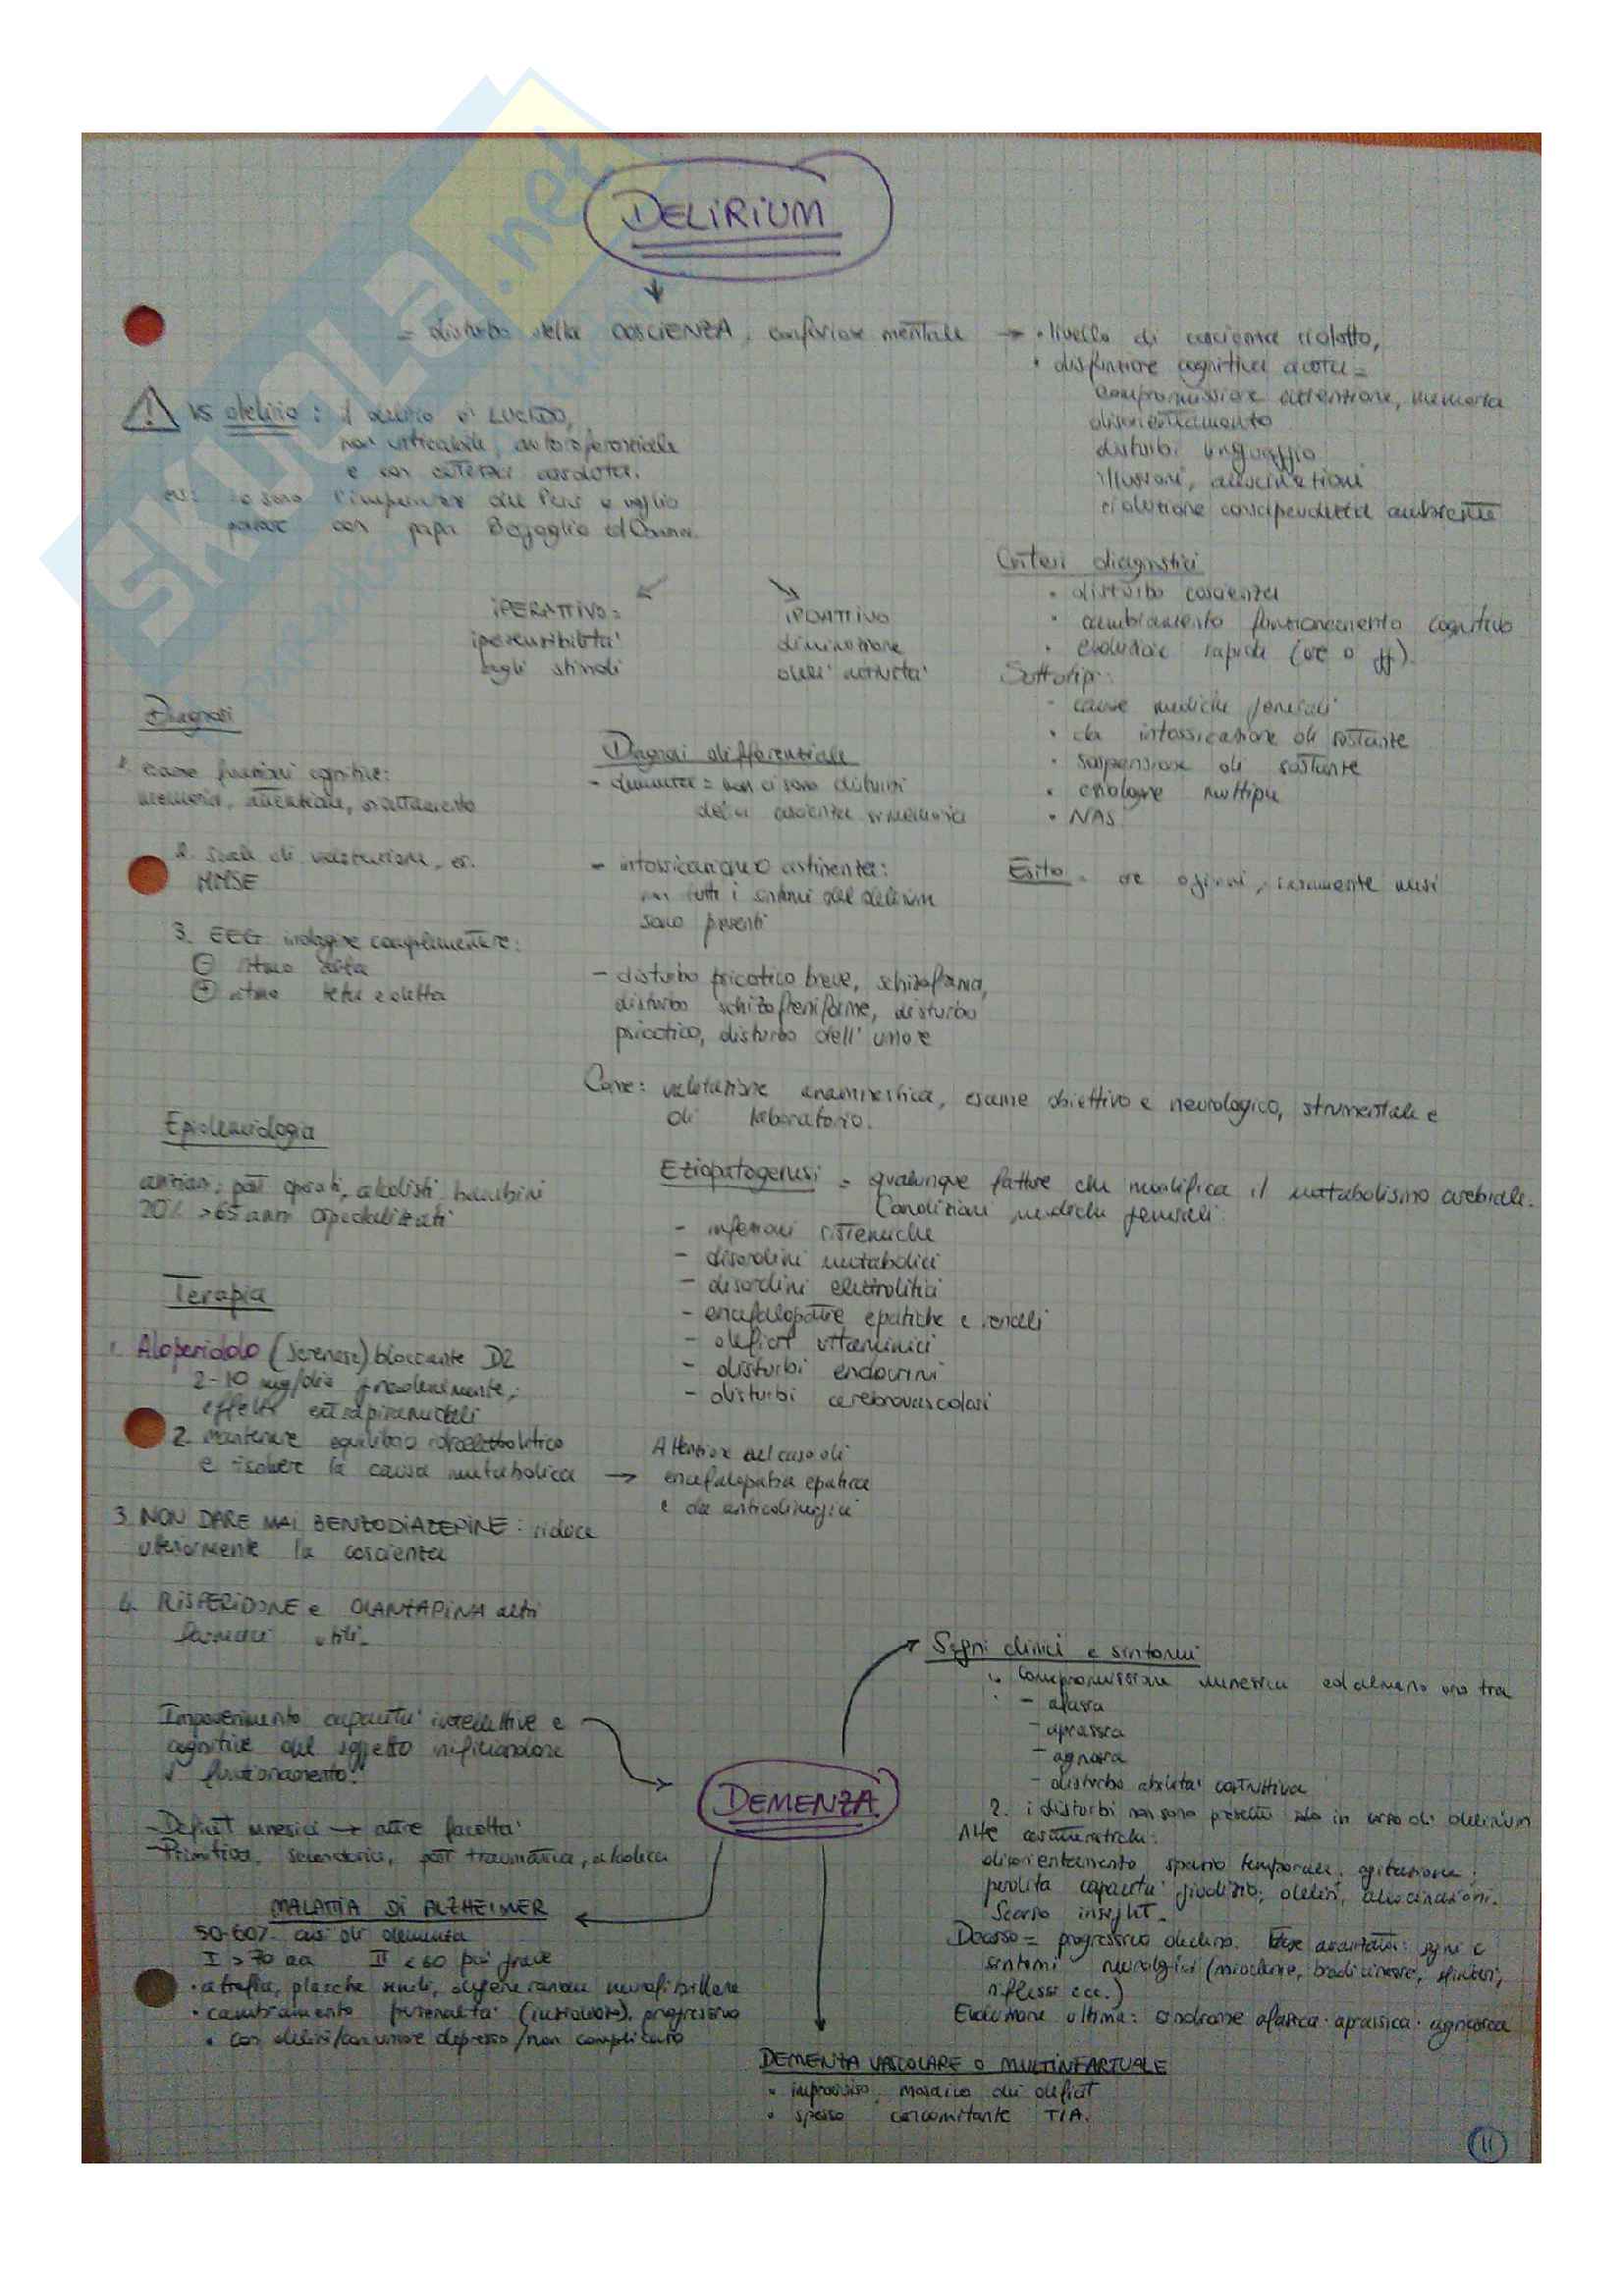 DELIRIUM
= disturbo della COSCIENZA, confusione mentale → • livello di coscienza ridotto,
• disfunzione cognitiva acuta =
compromissione attenzione, memoria
disorientamento
disturbi linguaggio
illusioni, allucinazioni
riduzione consapevolezza ambiente
VS delirio: il delirio è LUCIDO,
non criticabile, autoreferenziale
e con carattere
es: io sono l'imperatore del Perù e voglio
parlare con papa
IPERATTIVO =
ipersensibilità
agli stimoli
IPOATTIVO
diminuzione
dell'attività
Criteri diagnostici
• disturbo coscienza
• cambiamento funzionamento cognitivo
• evoluzione rapida (ore o gg).
Sottotipi:
- cause mediche generali
• da intossicazione di sostanze
• sospensione di sostanze
• eziologie multiple
• NAS
Esito = ore o giorni, raramente mesi
Diagnosi
1. esame funzioni cognitive:
memoria, attenzione, orientamento
2. scale di valutazione, es.
MMSE
3. EEG indagine complementare:
⊖ ritmo alfa
⊕ ritmo teta e delta
Diagnosi differenziale
- demenza = non ci sono disturbi
della coscienza
- intossicazione o astinenza:
non tutti i sintomi del delirium
sono presenti
- disturbo psicotico breve, schizofrenia,
disturbo schizofreniforme, disturbo
psicotico, disturbo dell'umore
Come: valutazione anamnestica, esame obiettivo e neurologico, strumentale e
di laboratorio.
Epidemiologia
anziani, post operati, alcolisti, bambini
20% >65 anni ospedalizzati
Eziopatogenesi = qualunque fattore che modifica il metabolismo cerebrale.
Condizioni mediche generali:
- infezioni sistemiche
- disordini metabolici
- disordini elettrolitici
- encefalopatie epatiche e renali
- deficit vitaminici
- disturbi endocrini
- disturbi cerebrovascolari
Terapia
1. Aloperidolo (Serenase) bloccante D2
2-10 mg/die gradualmente;
effetti extrapiramidali
2. Mantenere equilibrio idroelettrolitico
e risolvere la causa metabolica → Attenzione nel caso di
encefalopatia epatica
e da anticolinergici
3. NON DARE MAI BENZODIAZEPINE: riduce
ulteriormente la coscienza
4. RISPERIDONE e OLANZAPINA altri
farmaci utili.
DEMENZA
Impoverimento capacità intellettive e
cognitive del soggetto inficiandone
il funzionamento.
- Deficit mnesici → altre facoltà
- Primitiva, secondaria, post traumatica, alcolica
Segni clinici e sintomi
1. Compromissione mnesica ed almeno uno tra
- afasia
- aprassia
- agnosia
- disturbo abilità costruttiva
2. i disturbi non sono presenti solo in corso di delirium
Altre caratteristiche:
disorientamento spazio temporale, agitazione,
perdita capacità giudizio, deliri, allucinazioni.
Scarso insight.
Decorso = progressivo declino. Fase avanzata: segni e
sintomi neurologici (mioclonie, bradicinesie, sfinteri,
riflessi ecc.)
Evoluzione ultima: sindrome afasica-aprassica-agnosica
MALATTIA DI ALZHEIMER
50-60% casi di demenza
I >70 aa II <60 più grave
• atrofia, placche senili, degenerazione neurofibrillare
• cambiamento personalità progressivo
• con deliri/con umore depresso/non complicato
DEMENZA VASCOLARE O MULTINFARTUALE
• improvviso, mosaico dei deficit
• spesso concomitante TIA.
11
SKUOLA.net